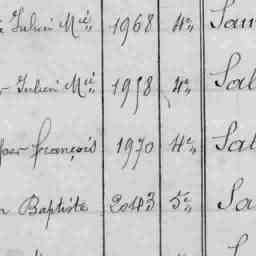 Julien Mié 1968 4e Sau
Julien Mié 1958 4e Sal
françois 1970 4e Sal
Baptiste 2043 5e Sa